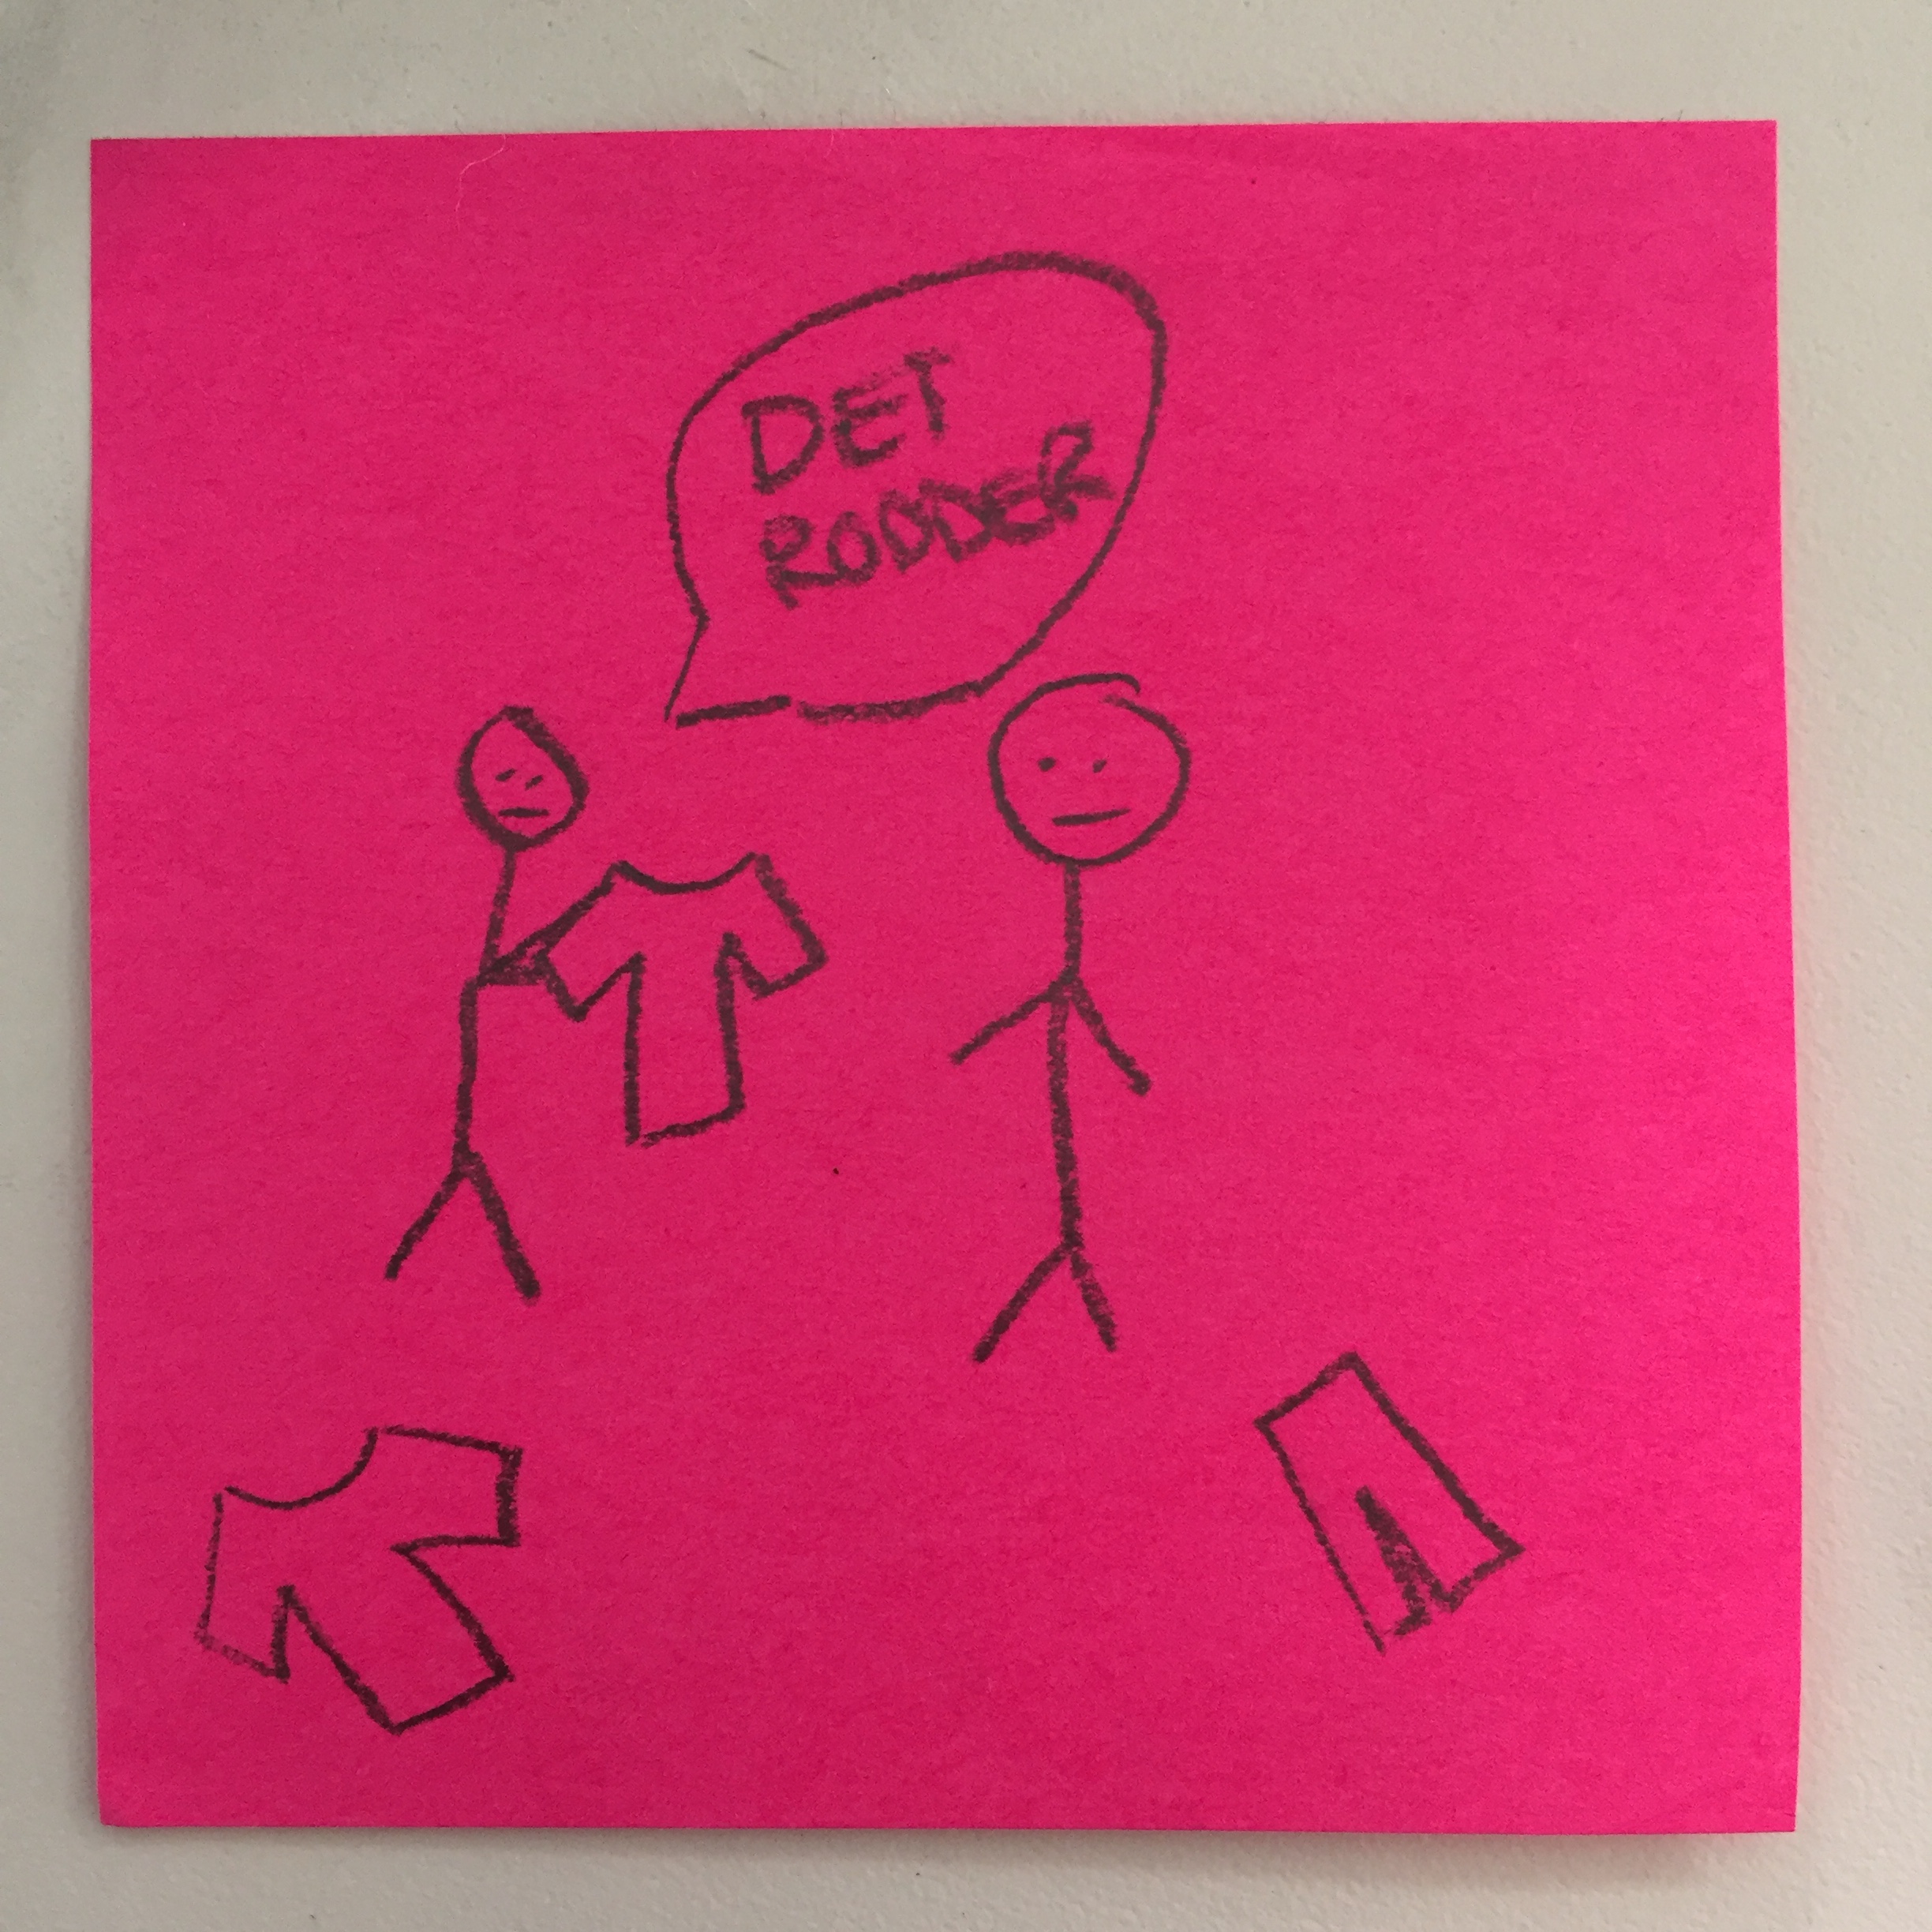 DET
RODDER